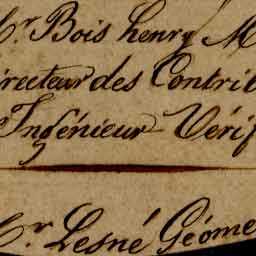 Mr Bois henry M
irecteur des Contrib
Ingénieur Vérif
Mr Lesné Géome